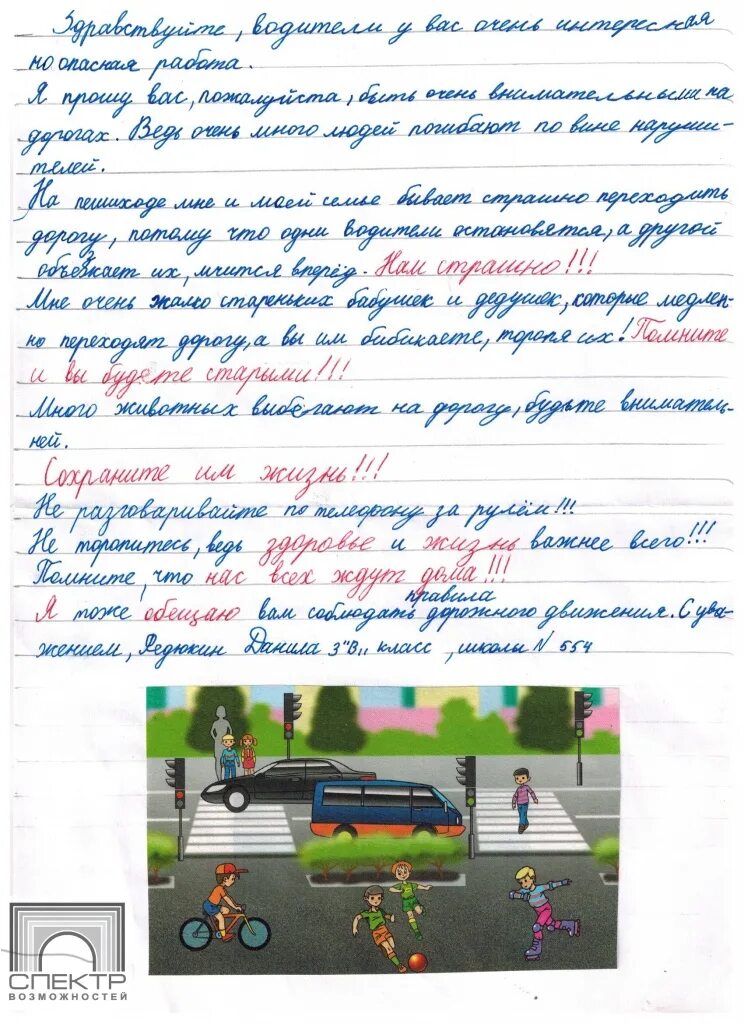 Здравствуйте, водители у вас очень интересная
но опасная работа.
Я прошу вас, пожалуйста, быть очень внимательными на
дорогах. Ведь очень много людей погибают по вине наруши-
телей.
На пешиходе мне и моей семье бывает страшно переходить
дорогу, потому что одни водители остановятся, а другой
объезжает их, мчится вперёд. Нам страшно!!!
Мне очень жалко стареньких бабушек и дедушек, которые медлен-
но переходят дорогу, а вы им бибикаете, торопя их! Помните
и вы будете старыми!!!
Много животных выбегают на дорогу, будьте вниматель-
ней.
Сохраните им жизнь!!!
Не разговаривайте по телефону за рулём!!!
Не торопитесь, ведь здоровье и жизнь важнее всего!!!
Помните, что нас всех ждут дома!!!
правила
Я тоже обещаю вам соблюдать дорожного движения. С ува-
жением, Редюкин Данила 3"В„ класс, школы N 554
СПЕКТР
ВОЗМОЖНОСТЕЙ